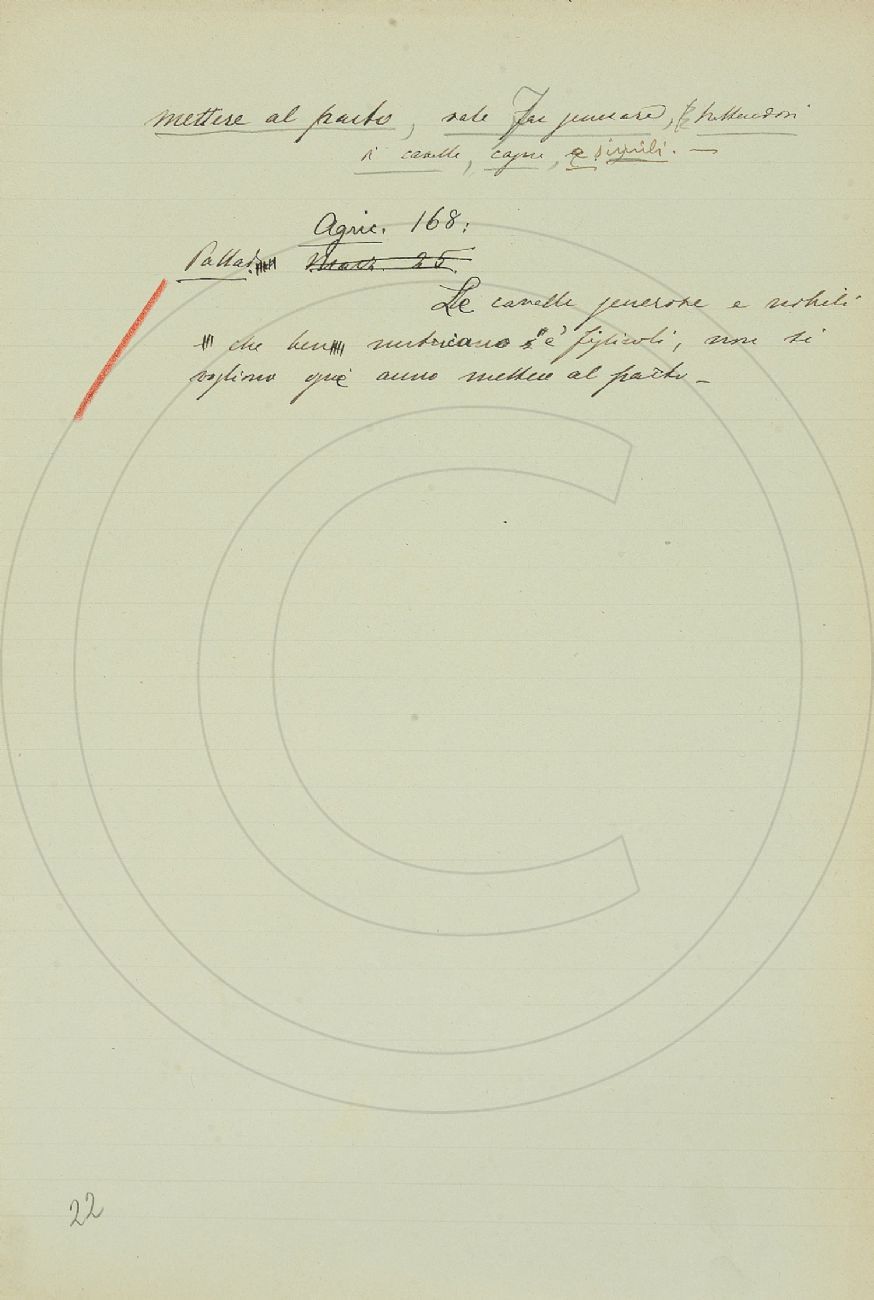 mettere al parto, vale Far generare, trattandosi
di cavalle, capre, e simili. —
Agric. 168:
Pallad. Marz. 25.
Le cavalle generose e nobili
che ben nutricano i figliuoli, non si
vogliono ogni anno mettere al parto —
22